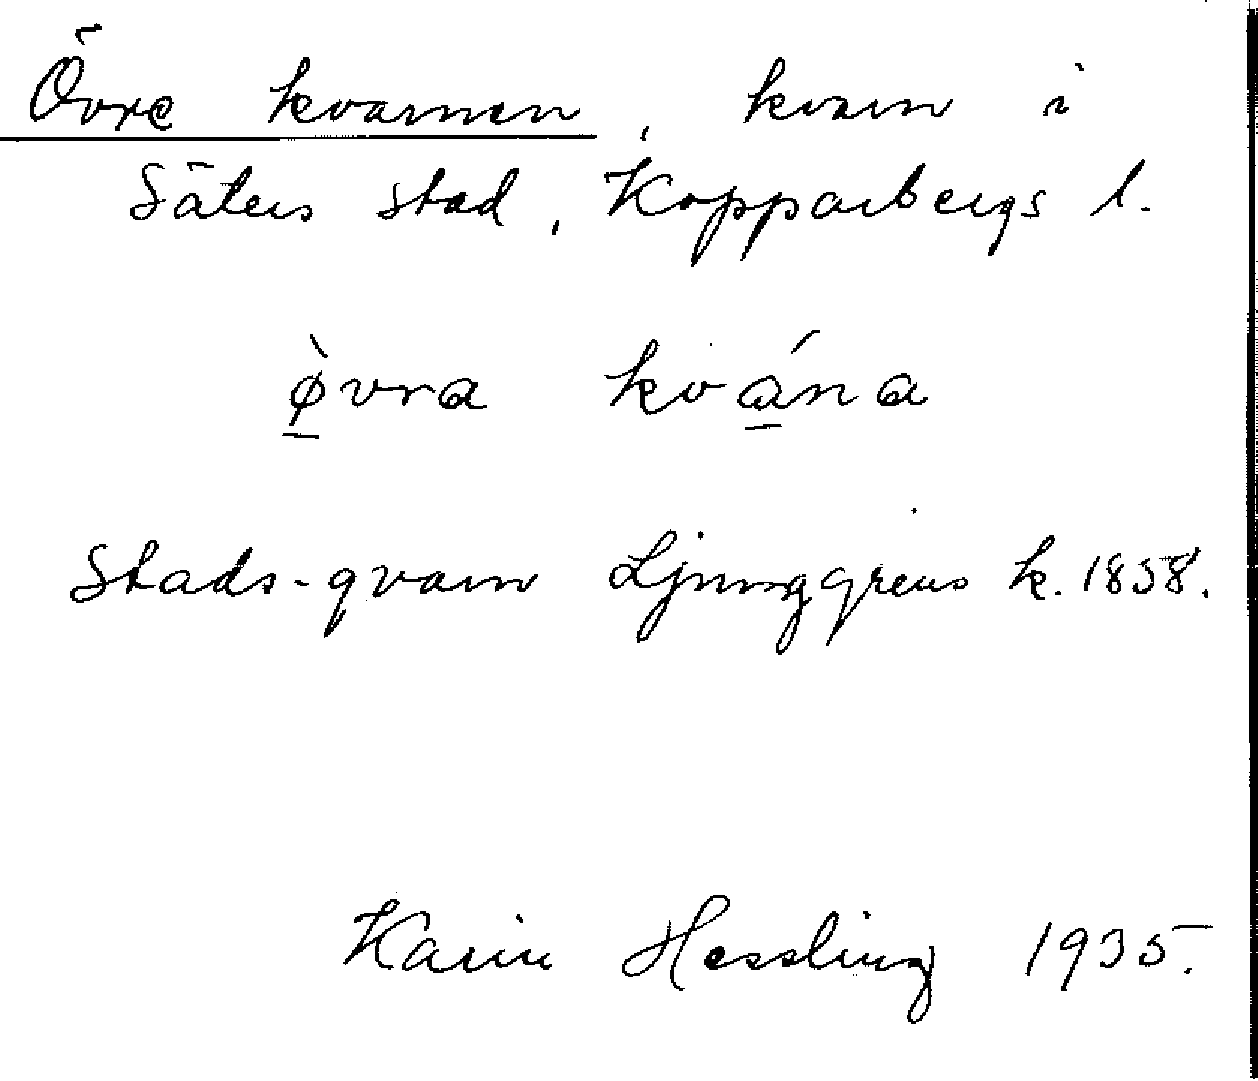 Övre kvarnen, kvarn i
Säters stad, Kopparbergs l.
ø̱̀vra kvá̱na
Stads-qvarn Ljunggrens k. 1858.
Karin Hessling 1935.